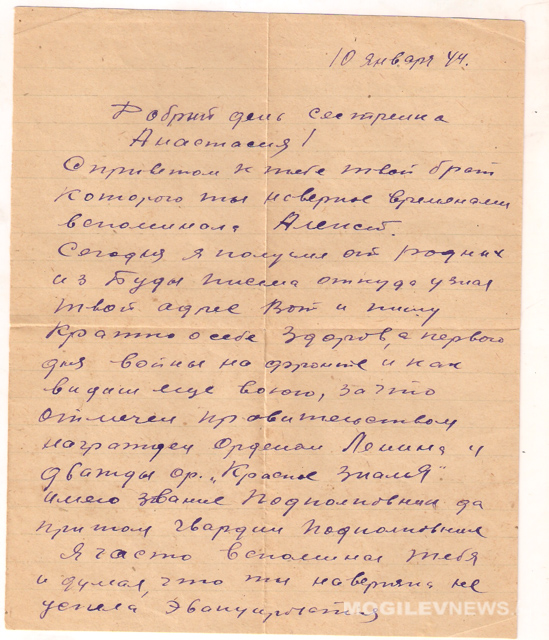 10 января 44.
Добрий день сестренка
Анастасия!
С приветом к тебе твой брат
которого ты наверное временами
вспоминала Алексей.
Сегодня я получил от родных
из Буды письма откуда узнал
твой адрес Вот и пишу
Кратко о себе Здоров, с первого
дня войны на фронте и как
видиш еще воюю, за что
отмечен правительством
награжден Орденом Ленина и
дважды ор. „Красное Знамя"
имею звание Подполковник да
притом гвардии Подполковник
Я часто вспоминал тебя
и думал, что ты наверняка не
успела Эвакуироватся
MOGILEVNEWS.